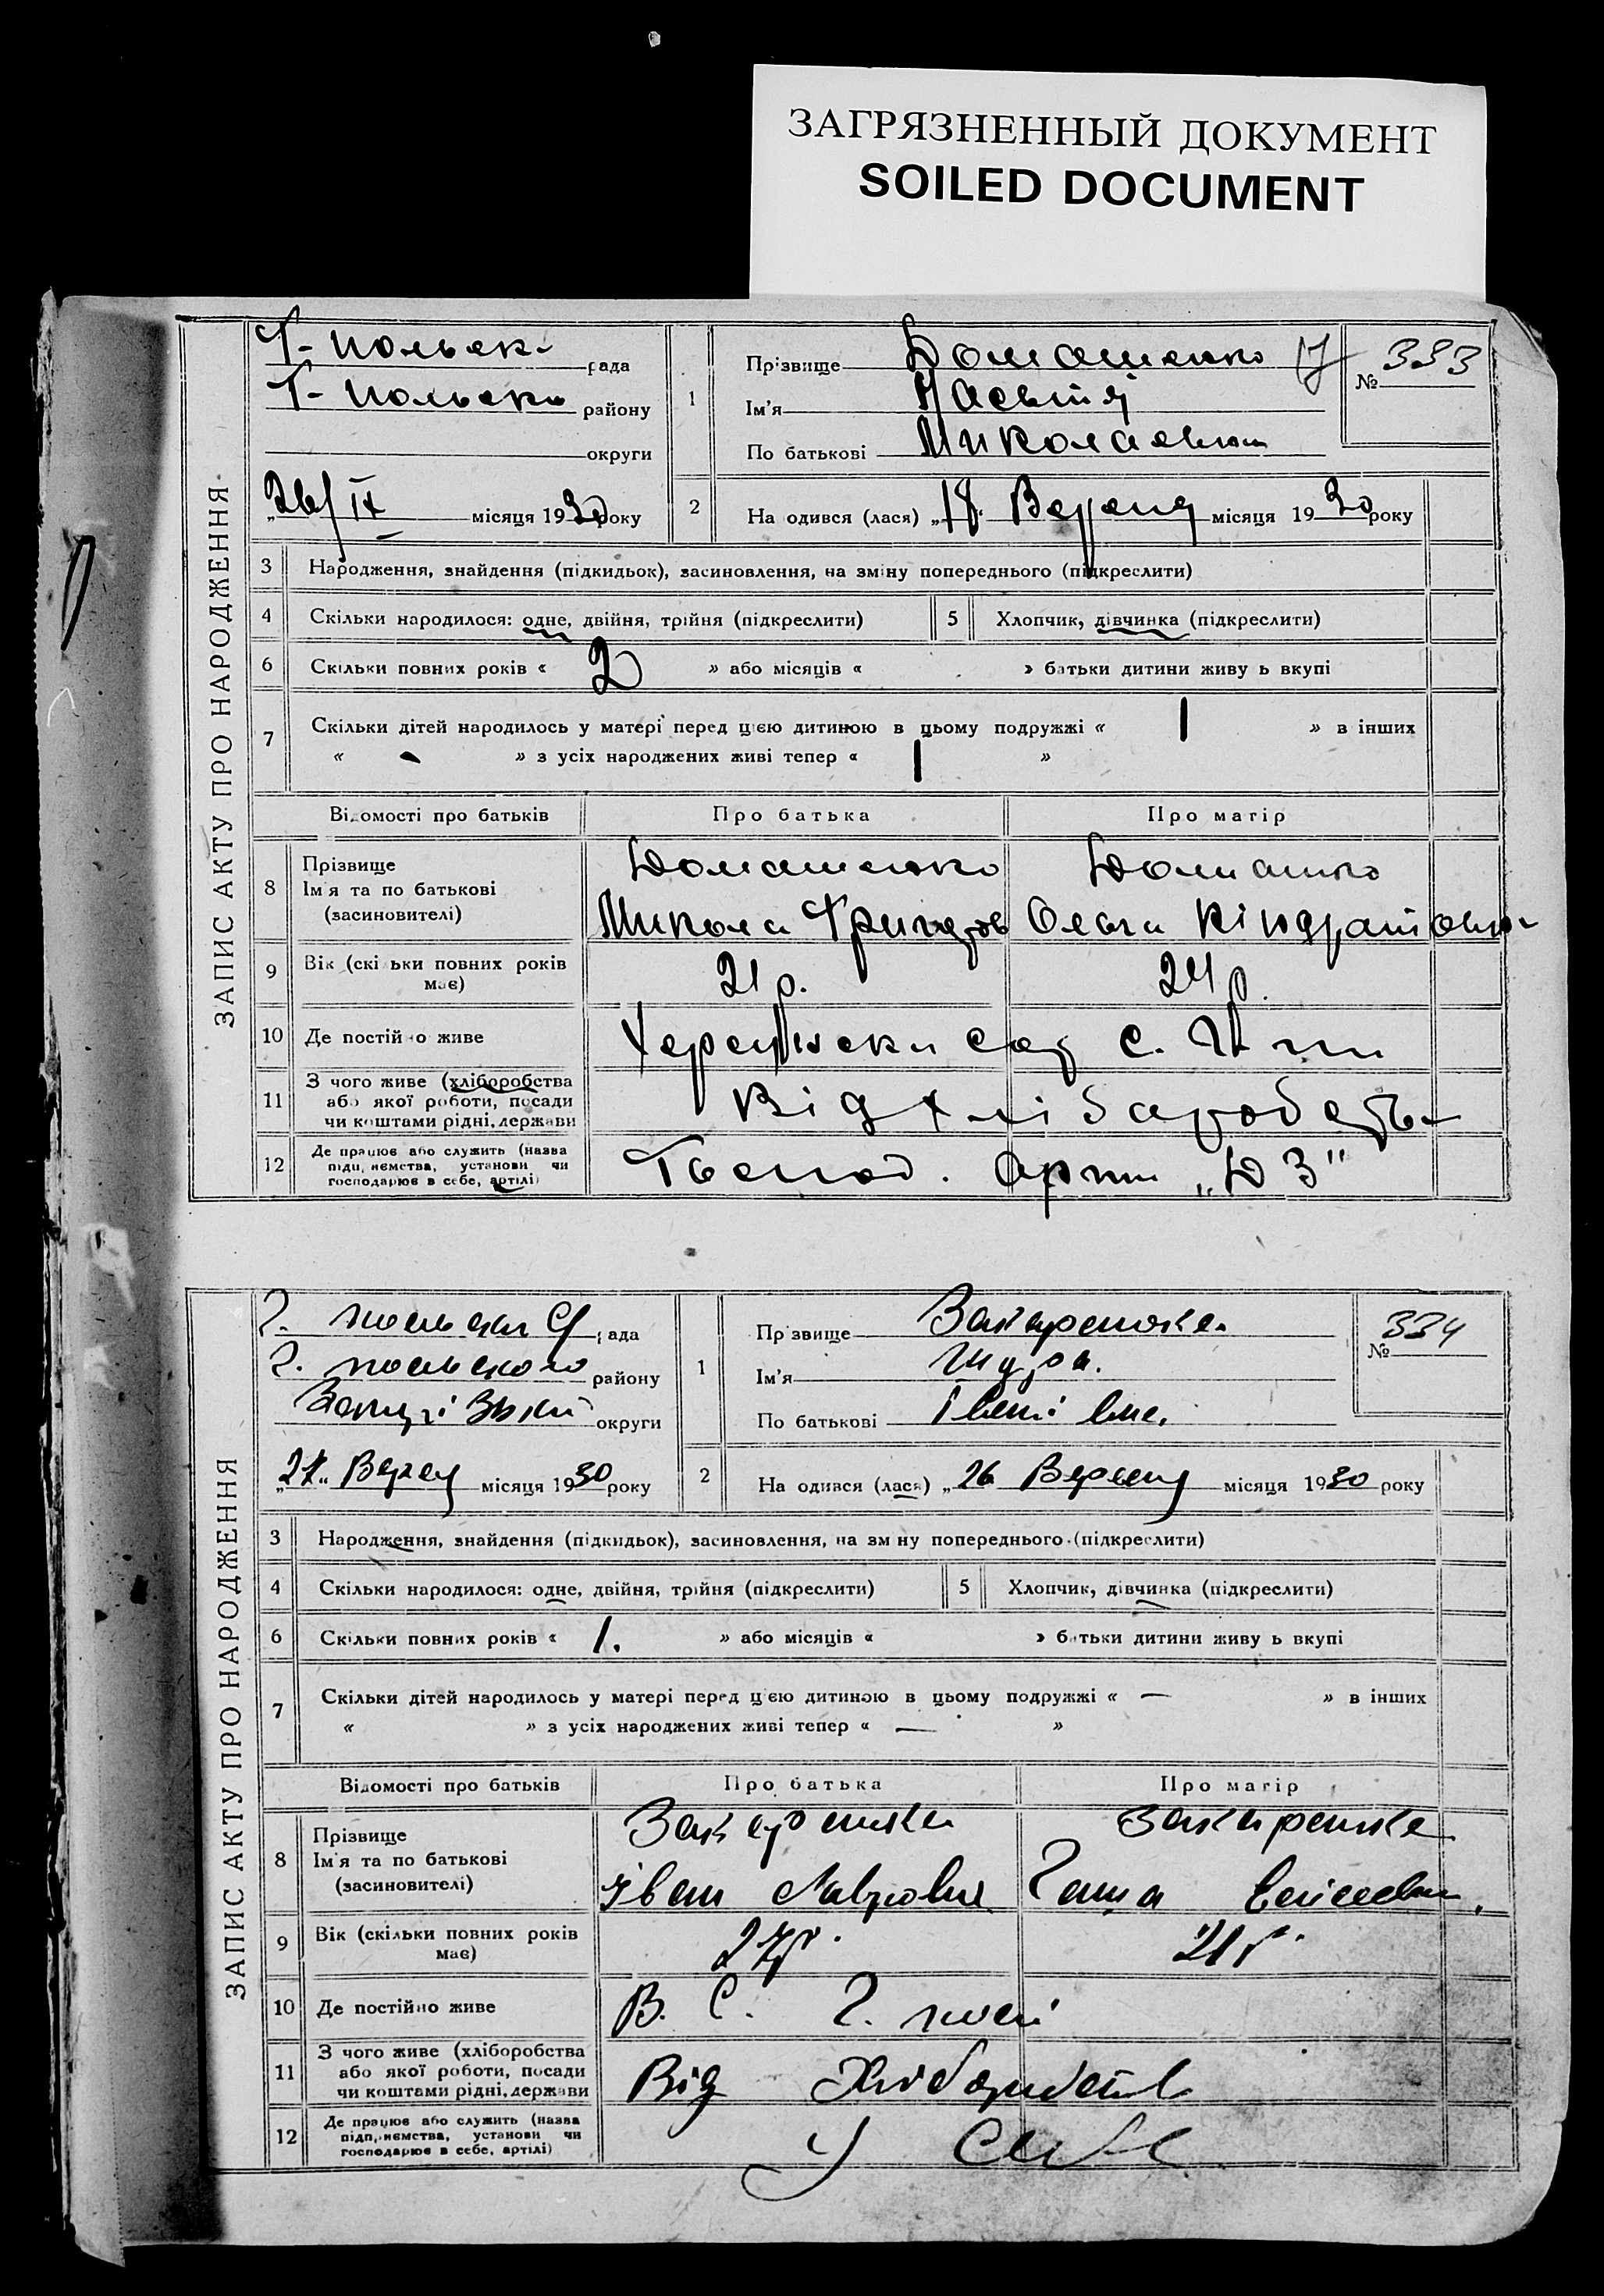 ЗАГРЯЗНЕННЫЙ ДОКУМЕНТ
SOILED DOCUMENT
ЗАПИС АКТУ ПРО НАРОДЖЕННЯ
Г-польськ рада
Г-польськ району
округи
26/ІХ місяця 1930 року
1
Прізвище Домашенко
Ім'я
По батькові Миколаевна
№ 333
2
На одився (лася) „18 Вересня місяця 1930 року
3 Народження, знайдення (підкидьок), засиновлення, на зміну попереднього (підкреслити)
4 Скільки народилося: одне, двійня, трійня (підкреслити)
5 Хлопчик, дівчинка (підкреслити)
6 Скільки повних років « 2 » або місяців « » батьки дитини живу ь вкупі
7 Скільки дітей народилось у матері перед цією дитиною в цьому подружжі « 1 » в інших
« - » з усіх народжених живі тепер « 1 »
Відомості про батьків Про батька Про матір
8 Прізвище
Ім'я та по батькові
(засиновителі)
Домашенко
Микола Григоров
Домашко
Ольга Кіндратовна
9 Вік (скі ьки повних років
має)
21 р. 24 р.
10 Де постійно живе
с.
11 З чого живе (хліборобства
або якої роботи, посади
чи коштами рідні, держави
Від хліборобства
12 Де працює або служить (назва
підп, иємства, установи чи
господарює в себе, артілі)
Господ. арти „ДЗ"
ЗАПИС АКТУ ПРО НАРОДЖЕННЯ
Г. польська рада
Г. польського району
округи
27 Вересн місяця 1930 року
1
Пр звище Захаренко
Ім'я
По батькові
№ 334
2
На одився (лася) „26 Вересня місяця 1930 року
3 Народження, знайдення (підкидьок), засиновлення, на зм ну попереднього (підкреслити)
4 Скільки народилося: одне, двійня, трійня (підкреслити)
5 Хлопчик, дівчинка (підкреслити)
6 Скільки повних років « 1. » або місяців « » батьки дитини живу ь вкупі
7 Скільки дітей народилось у матері перед цією дитиною в цьому подружжі « — » в інших
« » з усіх народжених живі тепер « — »
Відомості про батьків Про батька Про матір
8 Прізвище
Ім'я та по батькові
(засиновителі)
Захаренко
Іван Лаврович
Захаренко
Ганна
9 Вік (скільки повних років
має)
27 р. 21 р.
10 Де постійно живе
В. С. Г. полі
11 З чого живе (хліборобства
або якої роботи, посади
чи коштами рідні, держави
Від Хліборобств
12 Де працює або служить (назва
підп, иємства, установи чи
господарює в себе, артілі)
У себе